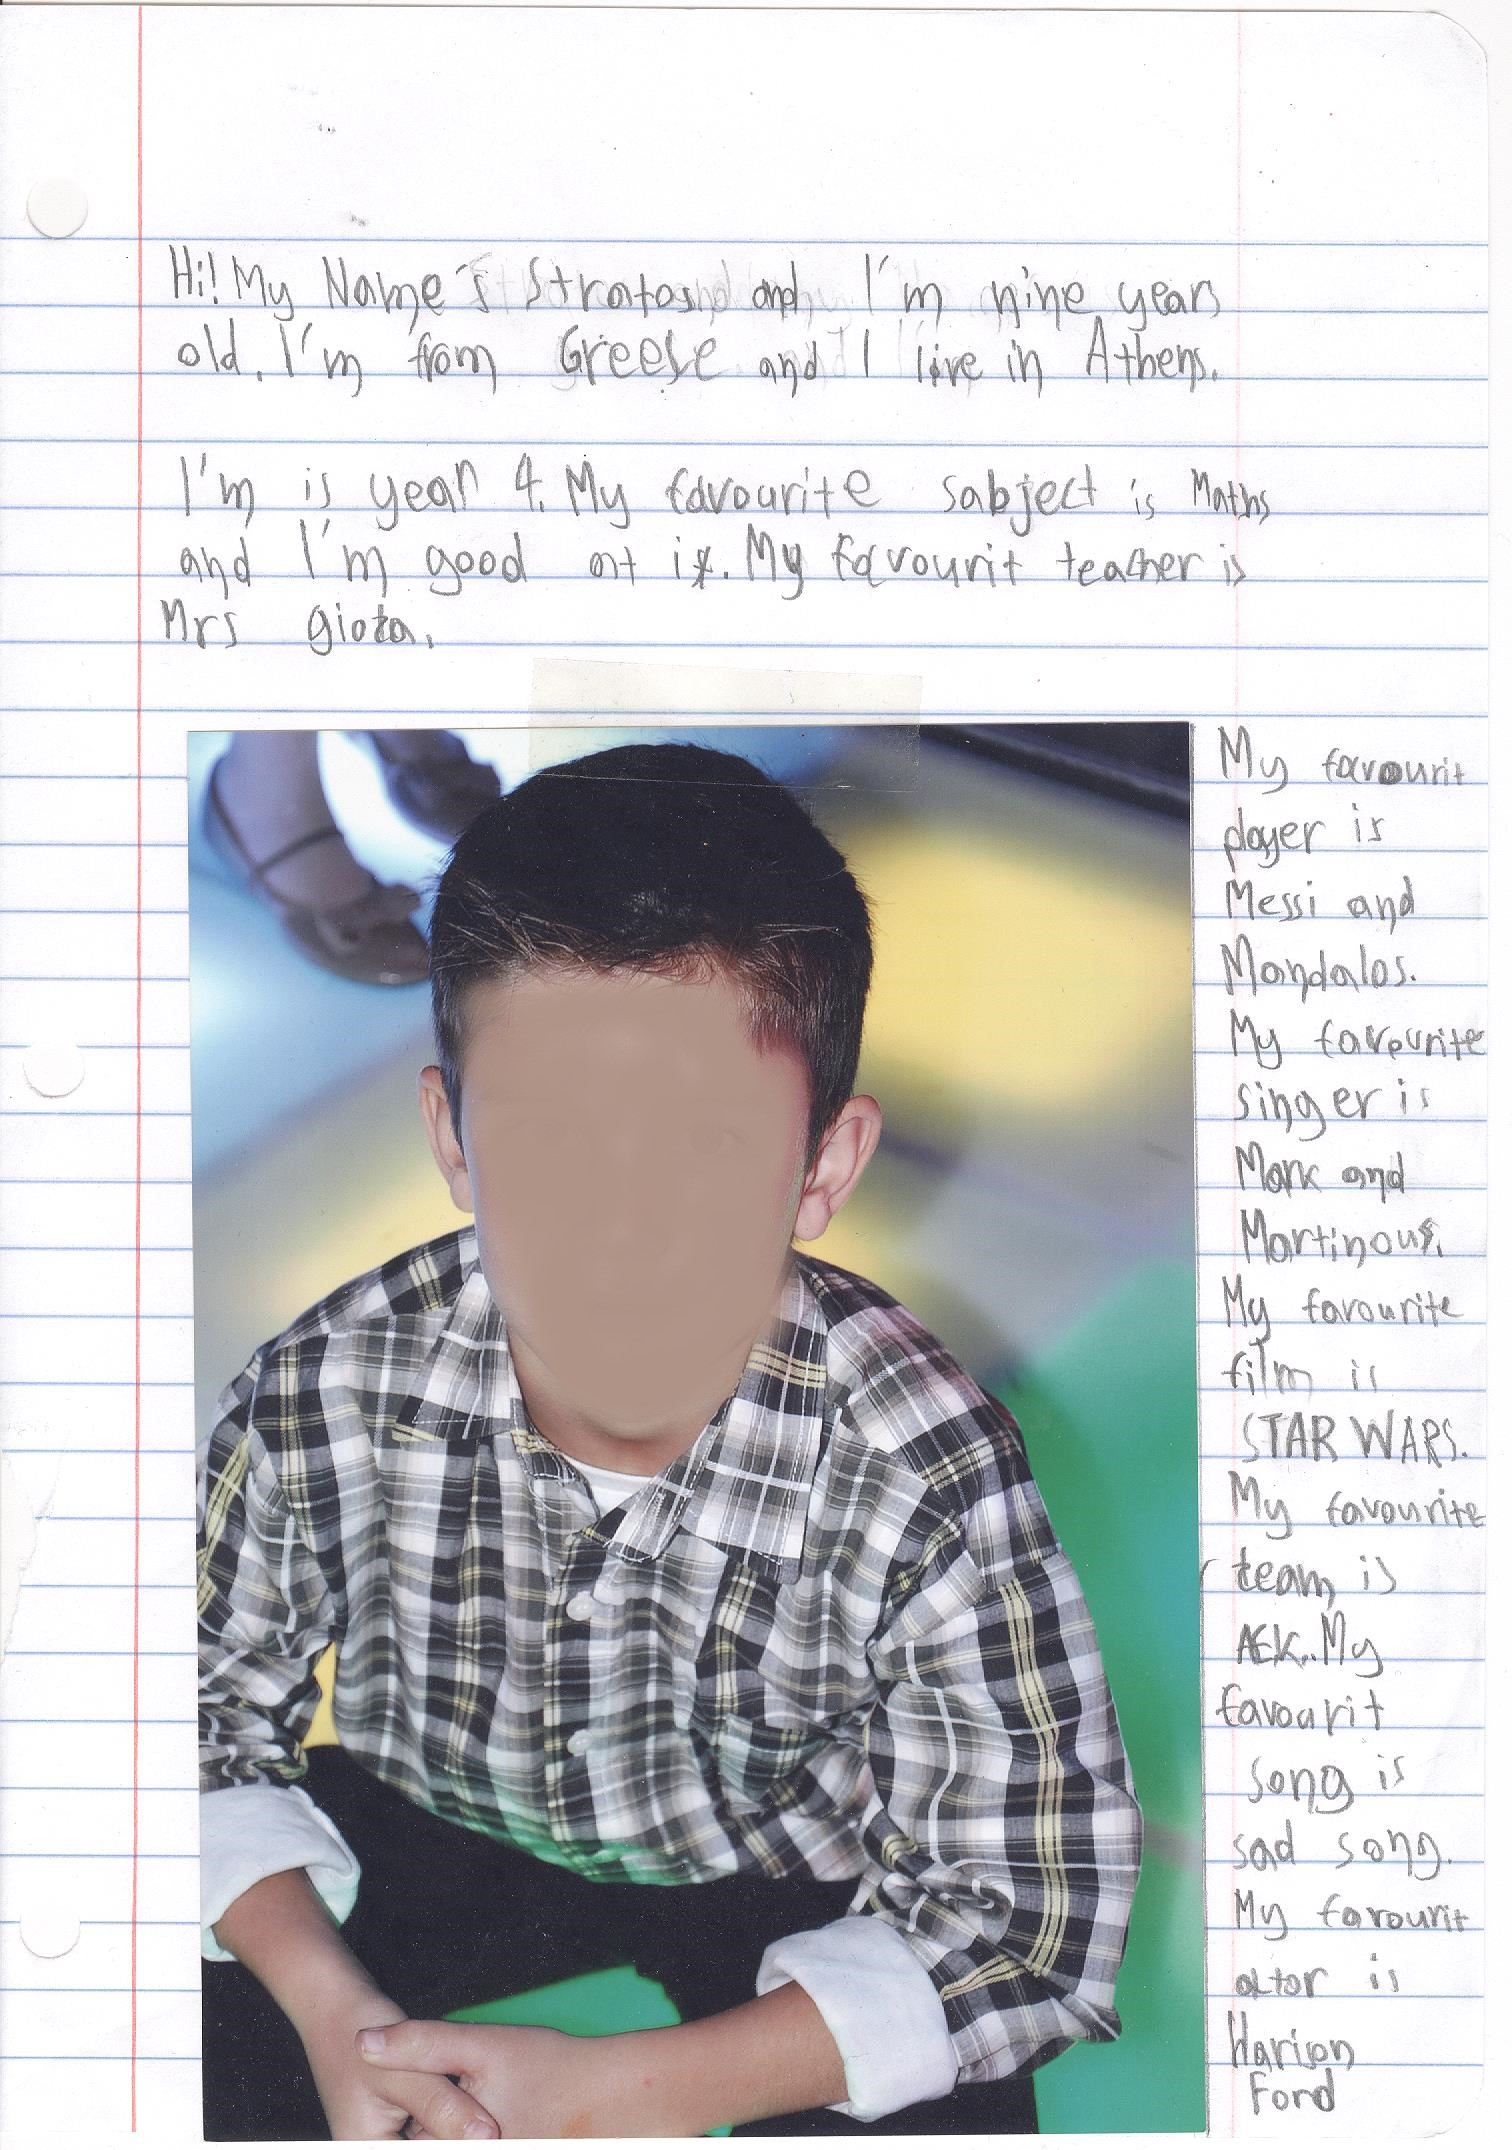 Hi! My Name's Stratos and I'm nine years
old. I'm from Greese and I live in Athens.
I'm is year 4. My favourite sabject is Maths
and I'm good at it. My favourit teacher is
Mrs giota.
My favourit
player is
Messi and
Mandalos.
My favourite
singer is
Mark and
Martinous.
My favourite
film is
STAR WARS.
My favourite
team is
AEK. My
favourit
song is
sad song.
My favourit
actor is
Harison
Ford